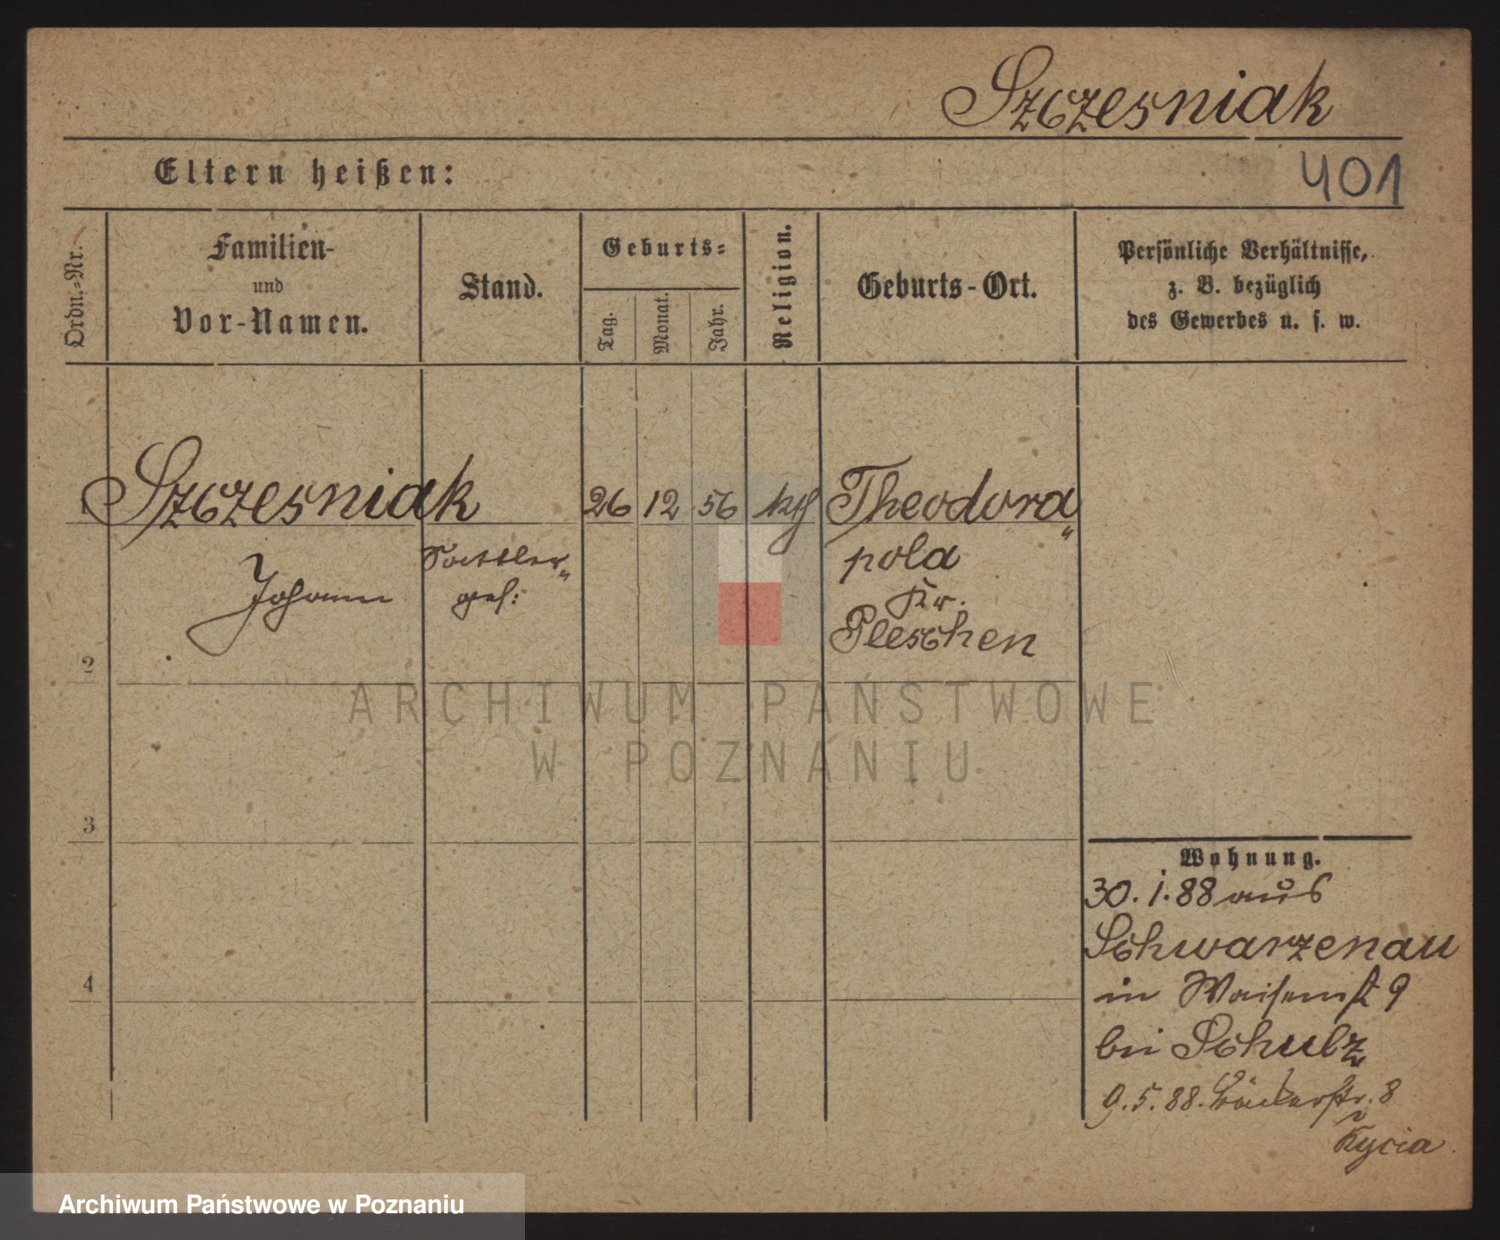 Szczesniak
Eltern heißen:
401
Ordn.-Nr.
Familien-
und
Vor-Namen.
Stand.
Geburts-
Tag.
Monat.
Jahr.
Religion.
Geburts-Ort.
Persönliche Verhältnisse,
z. B. bezüglich
des Gewerbes u. s. w.
Szczesniak 26 12 56 kth Theodora"
Johann Sattler" pola
ges: Kr.
Pleschen
2
3
4
Wohnung.
30. 1. 88 aus
Schwarzenau
in Waisenst 9
bei Schulz
9. 5. 88. Bäckerstr. 8
Kycia
ARCHIWUM PAŃSTWOWE
W POZNANIU
Archiwum Państwowe w Poznaniu